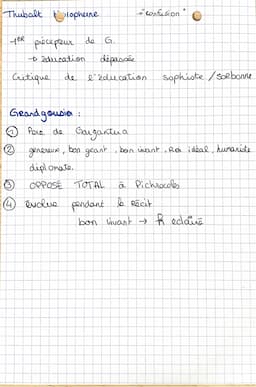 Thubalt Holopherne → "confusion"
→ 1er précepteur de G.
→ Education dépassée
Critique de l'éducation sophiste / sorbonne
Grandgousier :
① Père de Gargantua
② généreux, bon géant, bon vivant, Roi idéal, humaniste
diplomate.
③ OPPOSÉ TOTAL à Pichrocole
④ Evolue pendant le Récit
bon vivant → R éclairé